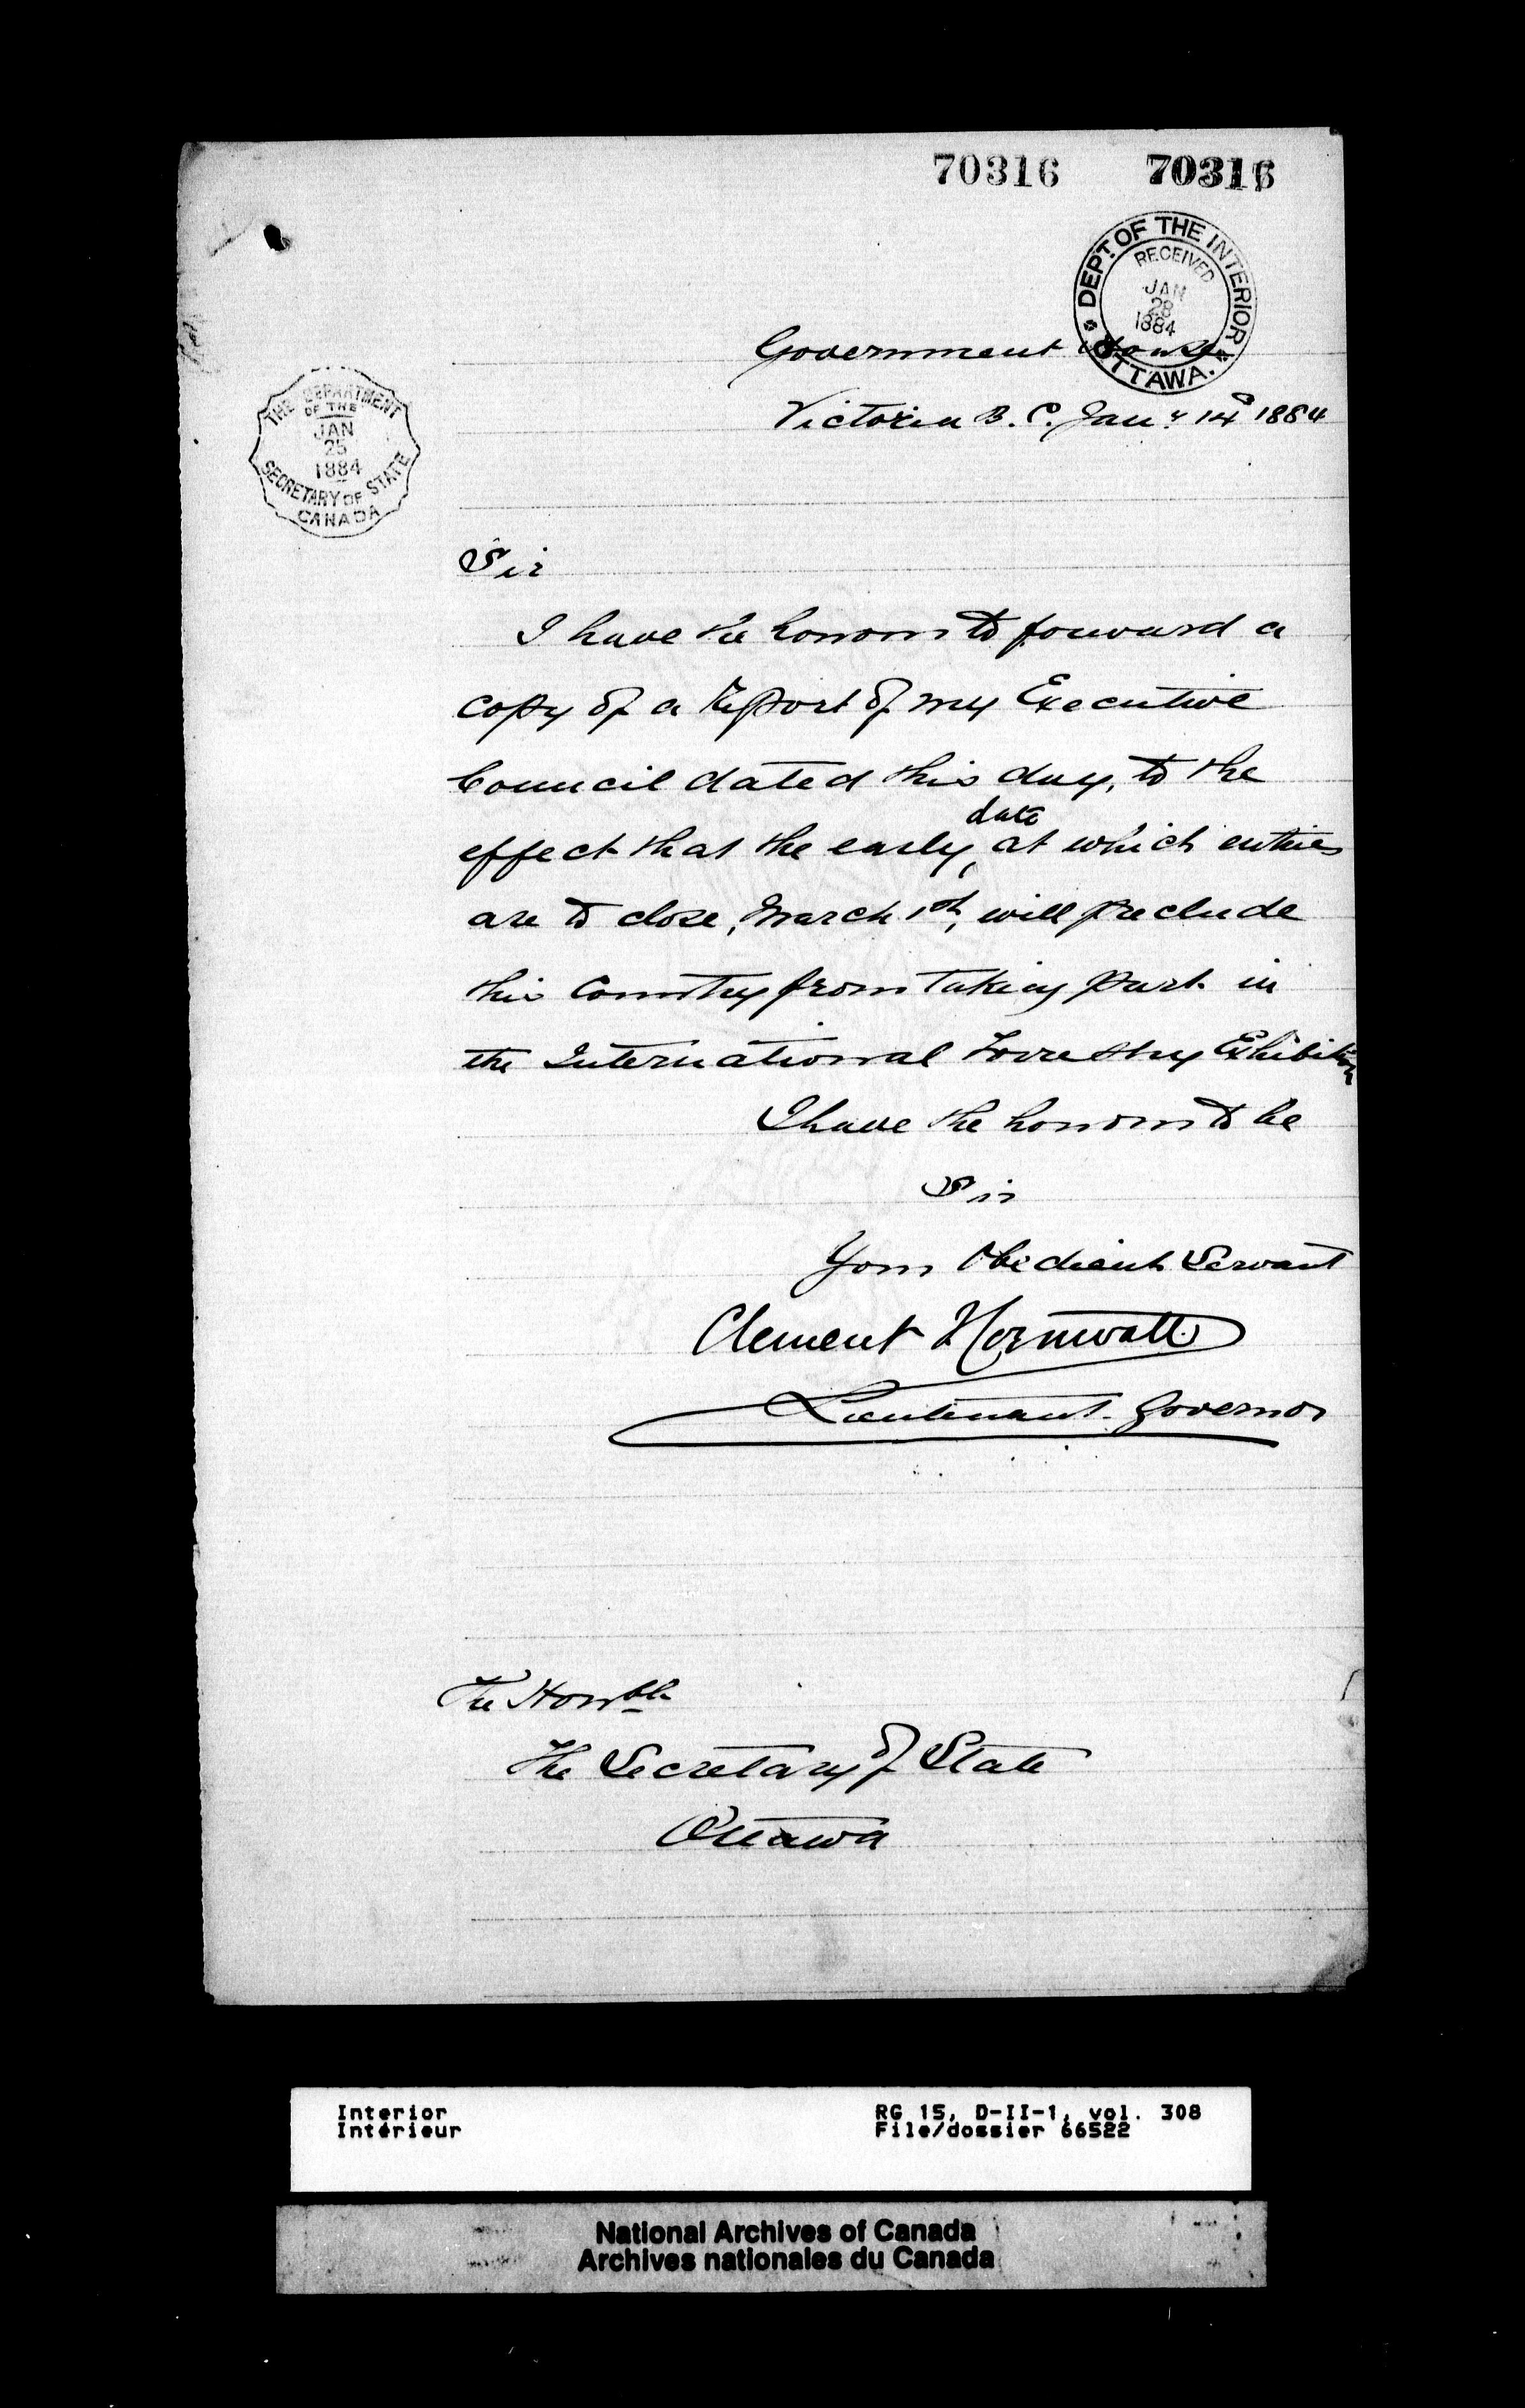 70316 70316
DEPT. OF THE INTERIOR
RECEIVED
JAN
28
1884
OTTAWA.
Government House
Victoria B.C. Jany 14th 1884
THE DEPARTMENT
OF THE
JAN
25
1884
SECRETARY OF STATE
CANADA
Sir
I have the honour to forward a
copy of a Report of my Executive
Council dated this day, to the
effect that the early date at which entries
are to close, March 1st, will preclude
this Country from taking part in
the International Forrestry Exhibition
I have the honour to be
Sir
Your Obedient Servant
Clement F Cornwall
Lieutenant-Governor
The Honble
The Secretary of State
Ottawa
Interior RG 15, D-II-1, vol. 308
Intérieur File/dossier 66522
National Archives of Canada
Archives nationales du Canada